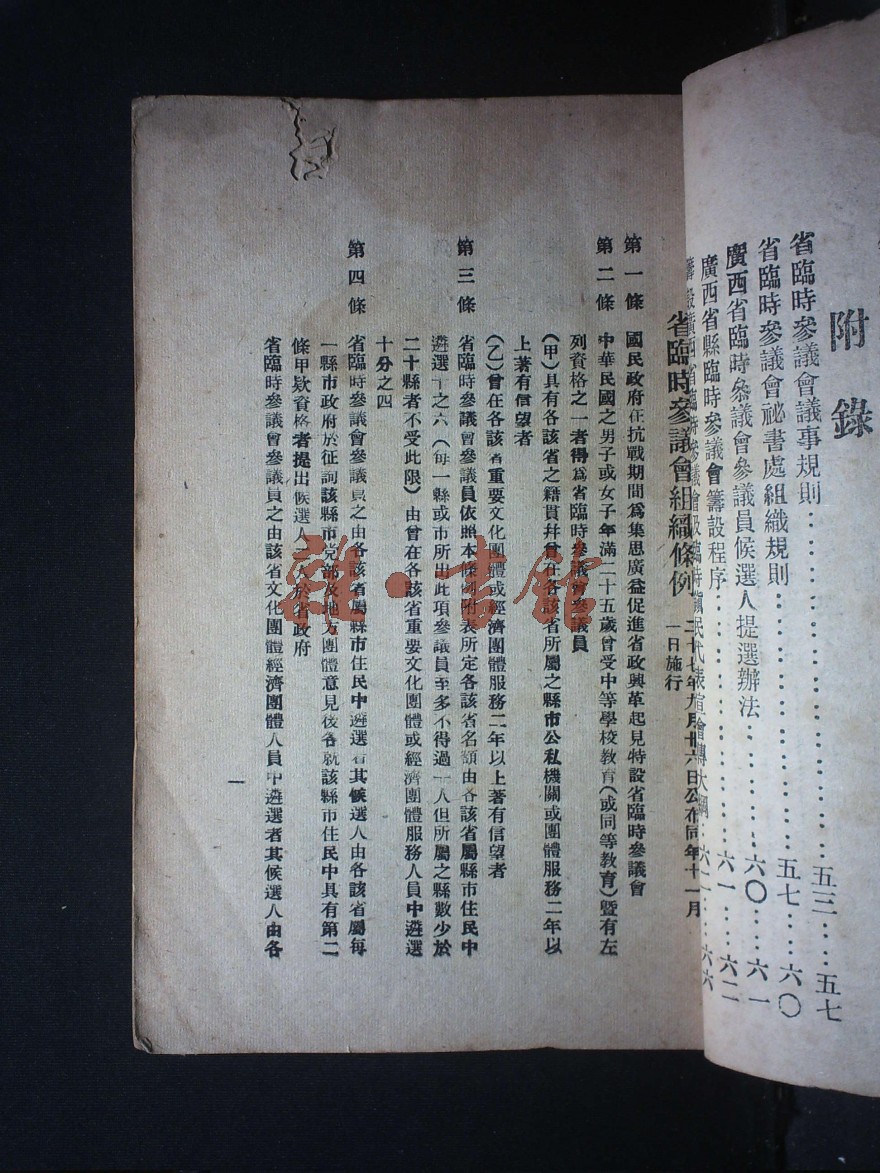 附錄
省臨時參議會議事規則……五三……五七
省臨時參議會祕書處組織規則……五七……六〇
廣西省臨時參議會參議員候選人提選辦法……六〇……六一
廣西省縣臨時參議會籌設程序……六一……六二
籌設廣西省臨時參議會及臨時 民代表宣傳大綱……六二……六六
省臨時參議會組織條例 二十七年九月廿六日公布同年十一月
一日施行
第一條 國民政府在抗戰期間為集思廣益促進省政興革起見特設省臨時參議會
第二條 中華民國之男子或女子年滿二十五歲曾受中等學校教育(或同等教育)暨有左
列資格之一者得爲省臨時參議會參議員
(甲)具有各該省之籍貫幷曾在各該省所屬之縣市公私機關或團體服務二年以
上著有信望者
(乙)曾在各該省重要文化團體或經濟團體服務二年以上著有信望者
第三條 省臨時參議會參議員依照本條例附表所定各該省名額由各該省屬縣市住民中
遴選十之六(每一縣或市所出此項參議員至多不得過一人但所屬之縣數少於
二十縣者不受此限)由曾在各該省重要文化團體或經濟團體服務人員中遴選
十分之四
第四條 省臨時參議會參議員之由各該省屬縣市住民中遴選者其候選人由各該省屬每
一縣市政府於征詢該縣市党部及地方團體意見後各就該縣市住民中具有第二
條甲欵資格者提出候選人二人於省政府
省臨時參議會參議員之由該省文化團體經濟團體人員中遴選者其候選人由各
一
雜·書館